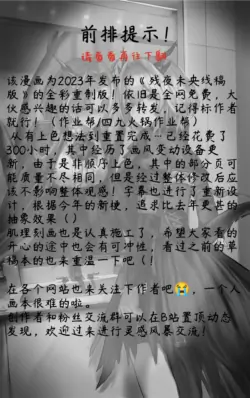 前排提示！
请看看再往下翻
该漫画为2023年发布的《残夜未央线稿
版》的全彩重制版！依旧是全网免费，大
伙感兴趣的话可以多多转发，记得标作者
就行！（作业帮/四九火锅作业帮）
从有上色想法到重置完成…已经花费了
300小时，其中经历了画风变动设备更
新，由于是非顺序上色，其中的部分页可
能质量不尽相同，但是经过整体修改后应
该不影响整体观感！字幕也进行了重新设
计，根据今年的新梗，追求比去年更甚的
抽象效果（）
肌理刻画也是认真施工了，希望大家看的
开心的途中也会有可冲性，看过之前的草
稿本的也来重温一下吧（！
在各个网站也来关注下作者吧😭，一个人
画本很难的啦。
创作者和粉丝交流群可以在B站置顶动态
发现，欢迎过来进行灵感风暴交流！